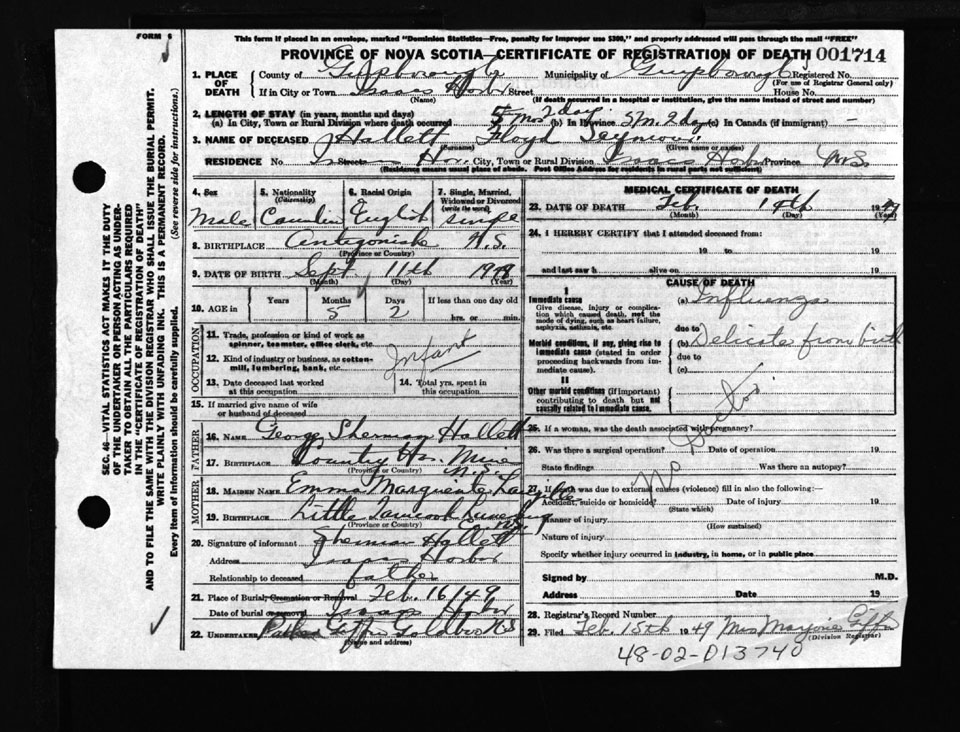 FORM 6
This form if placed in an envelope, marked "Dominion Statistics—Free, penalty for improper use $300," and properly addressed will pass through the mail "FREE"
PROVINCE OF NOVA SCOTIA—CERTIFICATE OF REGISTRATION OF DEATH 001714
SEC. 46—VITAL STATISTICS ACT MAKES IT THE DUTY
OF THE UNDERTAKER OR PERSON ACTING AS UNDER-
TAKER TO OBTAIN ALL THE PARTICULARS REQUIRED
IN THE "CERTIFICATE OF REGISTRATION OF DEATH"
AND TO FILE THE SAME WITH THE DIVISION REGISTRAR WHO SHALL ISSUE THE BURIAL PERMIT.
WRITE PLAINLY WITH UNFADING INK. THIS IS A PERMANENT RECORD.
Every item of information should be carefully supplied. (See reverse side for instructions.)
1. PLACE OF DEATH County of Municipality of Registered No.
(For use of Registrar General only)
If in City or Town Isaacs Harbor Street House No.
(Name) (If death occurred in a hospital or institution, give the name instead of street and number)
2. LENGTH OF STAY (in years, months and days)
(a) In City, Town or Rural Division where death occurred 5 mos 2 days (b) In Province 5 M. 2 days (c) In Canada (if immigrant) —
3. NAME OF DECEASED Hallett Floyd Seymour
(Surname) (Given names)
RESIDENCE No. Street Isaacs Har. City, Town or Rural Division Isaacs Harbor Province N.S.
(Residence means usual place of abode. Post Office Address for residents in rural parts not sufficient)
4. Sex
Male
5. Nationality
(Citizenship)
6. Racial Origin
English
7. Single, Married,
Widowed or Divorced
(write the word)
single
8. BIRTHPLACE Antigonish N.S.
(Province or Country)
9. DATE OF BIRTH Sept 11th 1948
(Month) (Day) (Year)
10. AGE in Years Months 5 Days 2 If less than one day old
hrs. or min.
OCCUPATION
11. Trade, profession or kind of work as
spinner, teamster, office clerk, etc.
Infant
12. Kind of industry or business, as cotton-
mill, lumbering, bank, etc.
13. Date deceased last worked
at this occupation
14. Total yrs. spent in
this occupation
15. If married give name of wife
or husband of deceased
FATHER
16. NAME George Sherman Hallett
17. BIRTHPLACE Country Har. N.S.
(Province or Country)
MOTHER
18. MAIDEN NAME Emma Marguerite
19. BIRTHPLACE Little Tancook N.S.
(Province or Country)
20. Signature of informant Sherman Hallett
Address Isaacs Harbor
Relationship to deceased father
21. Place of Burial, Cremation or Removal Feb. 16/49
Date of burial or removal Isaacs Harbor
22. UNDERTAKER N.S.
(Name and address)
MEDICAL CERTIFICATE OF DEATH
23. DATE OF DEATH Feb. 14th 1949
(Month) (Day) (Year)
24. I HEREBY CERTIFY that I attended deceased from:
19 to 19
and last saw h alive on 19
CAUSE OF DEATH
I
Immediate cause
Give disease, injury or complica-
tion which caused death, not the
mode of dying, such as heart failure,
asphyxia, asthenia, etc.
(a) Influenza
due to
Morbid conditions, if any, giving rise to
immediate cause (stated in order
proceeding backwards from im-
mediate cause).
(b) Delicate from birth
due to
(c)
II
Other morbid conditions (if important)
contributing to death but not
causally related to immediate cause.
No Doctor
25. If a woman, was the death associated with pregnancy?
26. Was there a surgical operation? Date of operation 19
State findings Was there an autopsy?
27. If death was due to external causes (violence) fill in also the following:—
Accident, suicide or homicide Date of injury 19
(State which)
Manner of injury
(How sustained)
Nature of injury
Specify whether injury occurred in industry, in home, or in public place
Signed by M.D.
Address Date 19
28. Registrar's Record Number
29. Filed Feb. 15th 1949 Mrs Marjorie Giffin
(Division Registrar)
48-02-013740